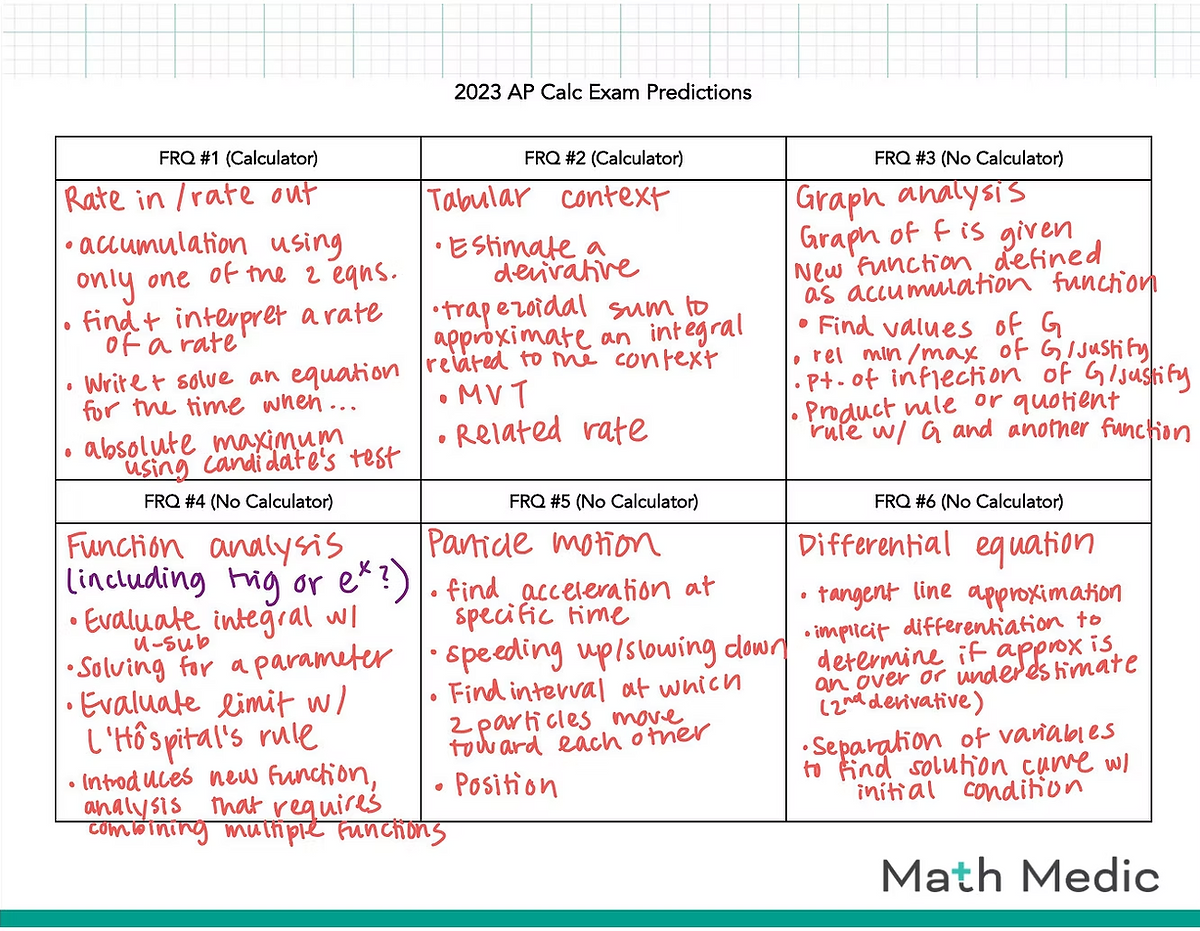 2023 AP Calc Exam Predictions
FRQ #1 (Calculator)
Rate in / rate out
• accumulation using
only one of the 2 eqns.
• find + interpret a rate
of a rate
• Write + solve an equation
for the time when...
• absolute maximum
using candidate's test
FRQ #2 (Calculator)
Tabular context
• Estimate a
derivative
• trapezoidal sum to
approximate an integral
related to the context
• MVT
• Related rate
FRQ #3 (No Calculator)
Graph analysis
Graph of f is given
New function defined
as accumulation function
• Find values of G
• rel min/max of G/justify
• pt. of inflection of G/justify
• Product rule or quotient
rule w/ G and another function
FRQ #4 (No Calculator)
Function analysis
(including trig or eˣ?)
• Evaluate integral w/
u-sub
• Solving for a parameter
• Evaluate limit w/
L'Hôspital's rule
• Introduces new function,
analysis that requires
combining multiple functions
FRQ #5 (No Calculator)
Particle motion
• find acceleration at
specific time
• speeding up/slowing down
• Find interval at which
2 particles move
toward each other
• Position
FRQ #6 (No Calculator)
Differential equation
• tangent line approximation
• implicit differentiation to
determine if approx is
an over or underestimate
(2nd derivative)
• Separation of variables
to find solution curve w/
initial condition
Math Medic